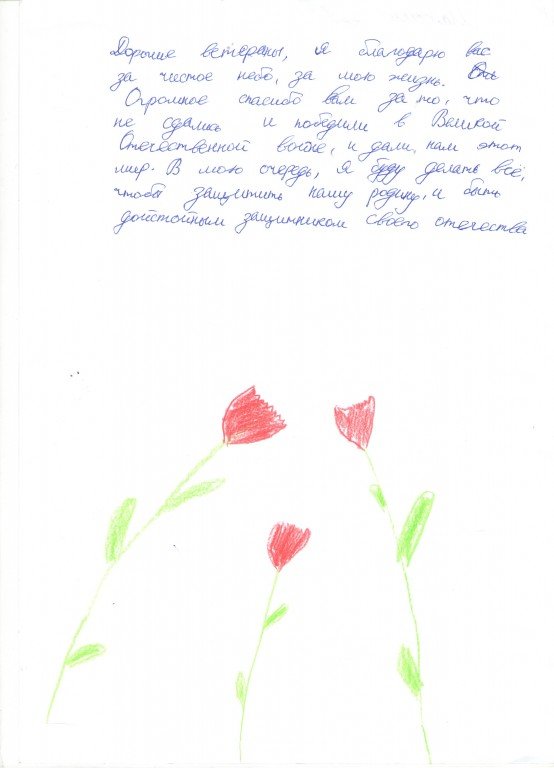 Дорогие ветераны, я благодарю вас
за чистое небо, за мою жизнь.
Огромное спасибо вам за то, что
не сдались и победили в Великой
Отечественной войне, и дали нам этот
мир. В мою очередь, я буду делать всё,
чтобы защитить нашу родину, и быть
достойным защинником своего отечества